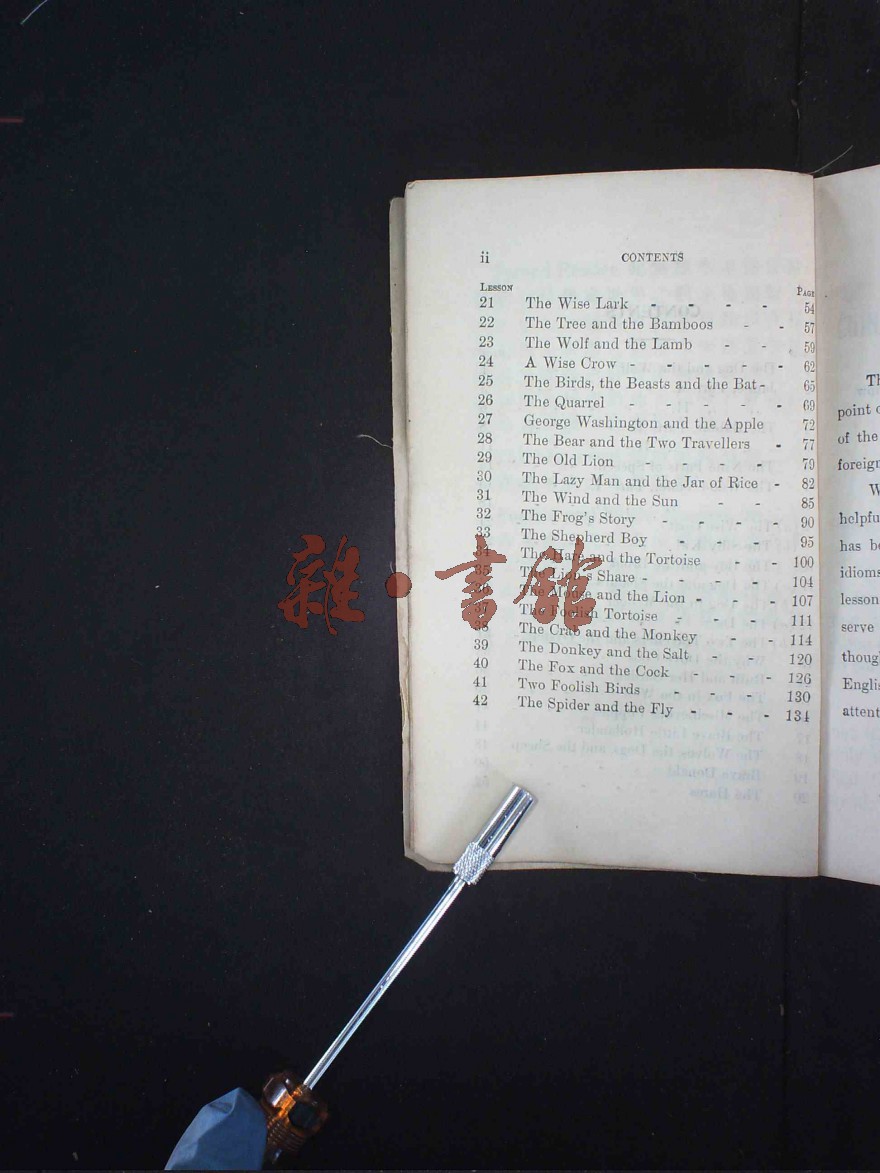 ii CONTENTS
LESSON PAGE
21 The Wise Lark - - - - 54
22 The Tree and the Bamboos - - 57
23 The Wolf and the Lamb - - 59
24 A Wise Crow - - - - - 62
25 The Birds, the Beasts and the Bat - 65
26 The Quarrel - - - - - 69
27 George Washington and the Apple 72
28 The Bear and the Two Travellers - 77
29 The Old Lion - - - - 79
30 The Lazy Man and the Jar of Rice - 82
31 The Wind and the Sun - - 85
32 The Frog's Story - - - - 90
33 The Shepherd Boy - - - 95
34 The Hare and the Tortoise - - 100
35 The Lion's Share - - - 104
36 The Mouse and the Lion - - - 107
37 The Foolish Tortoise - - - 111
38 The Crab and the Monkey - - 114
39 The Donkey and the Salt - - 120
40 The Fox and the Cock - - - 126
41 Two Foolish Birds - - - 130
42 The Spider and the Fly - - - 134
雜·書館
point
of the
foreign
helpfu
has be
idioms
lesson
serve
though
Englis
attent